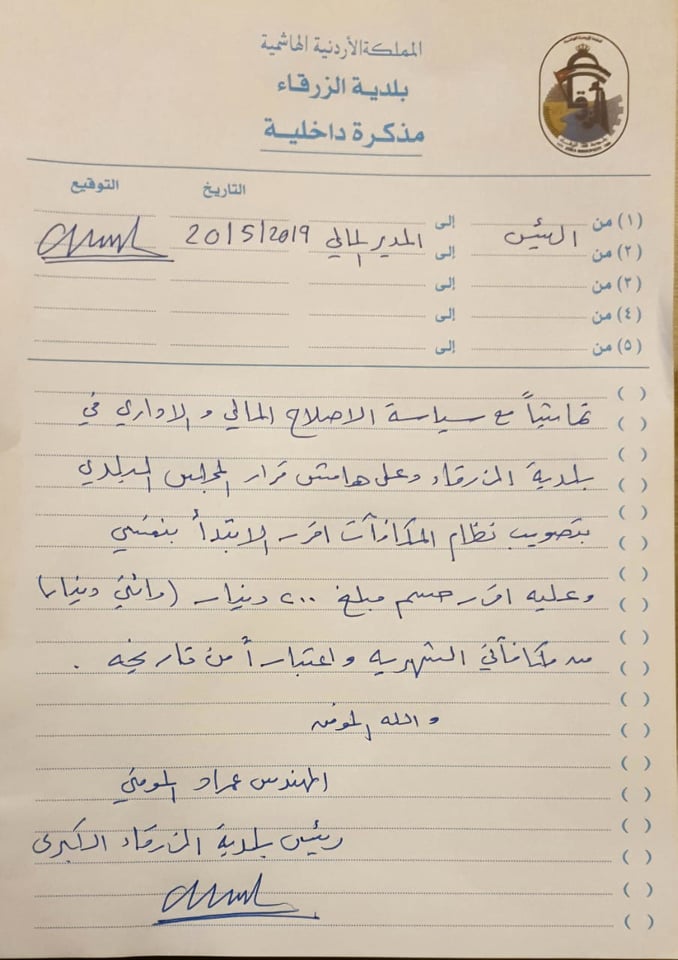 المملكة الأردنية الهاشمية
بلدية الزرقاء
مذكرة داخلية
التاريخ التوقيع
(١) من إلى
(٢) من الرئيس إلى المدير المالي 20/5/2019
(٣) من إلى
(٤) من إلى
(٥) من إلى
تماشياً مع سياسة الاصلاح المالي و الاداري في
بلدية الزرقاء وعلى هامش قرار المجلس البلدي
بتصويب نظام المكافآت اقرر الابتدأ بنفسي
وعليه اقرر حسم مبلغ ٢٠٠ دينار (مائتي دينار)
من مكافأتي الشهرية و اعتباراً من تاريخه .
و الله الموفق
المهندس عماد المومني
رئيس بلدية الزرقاء الكبرى